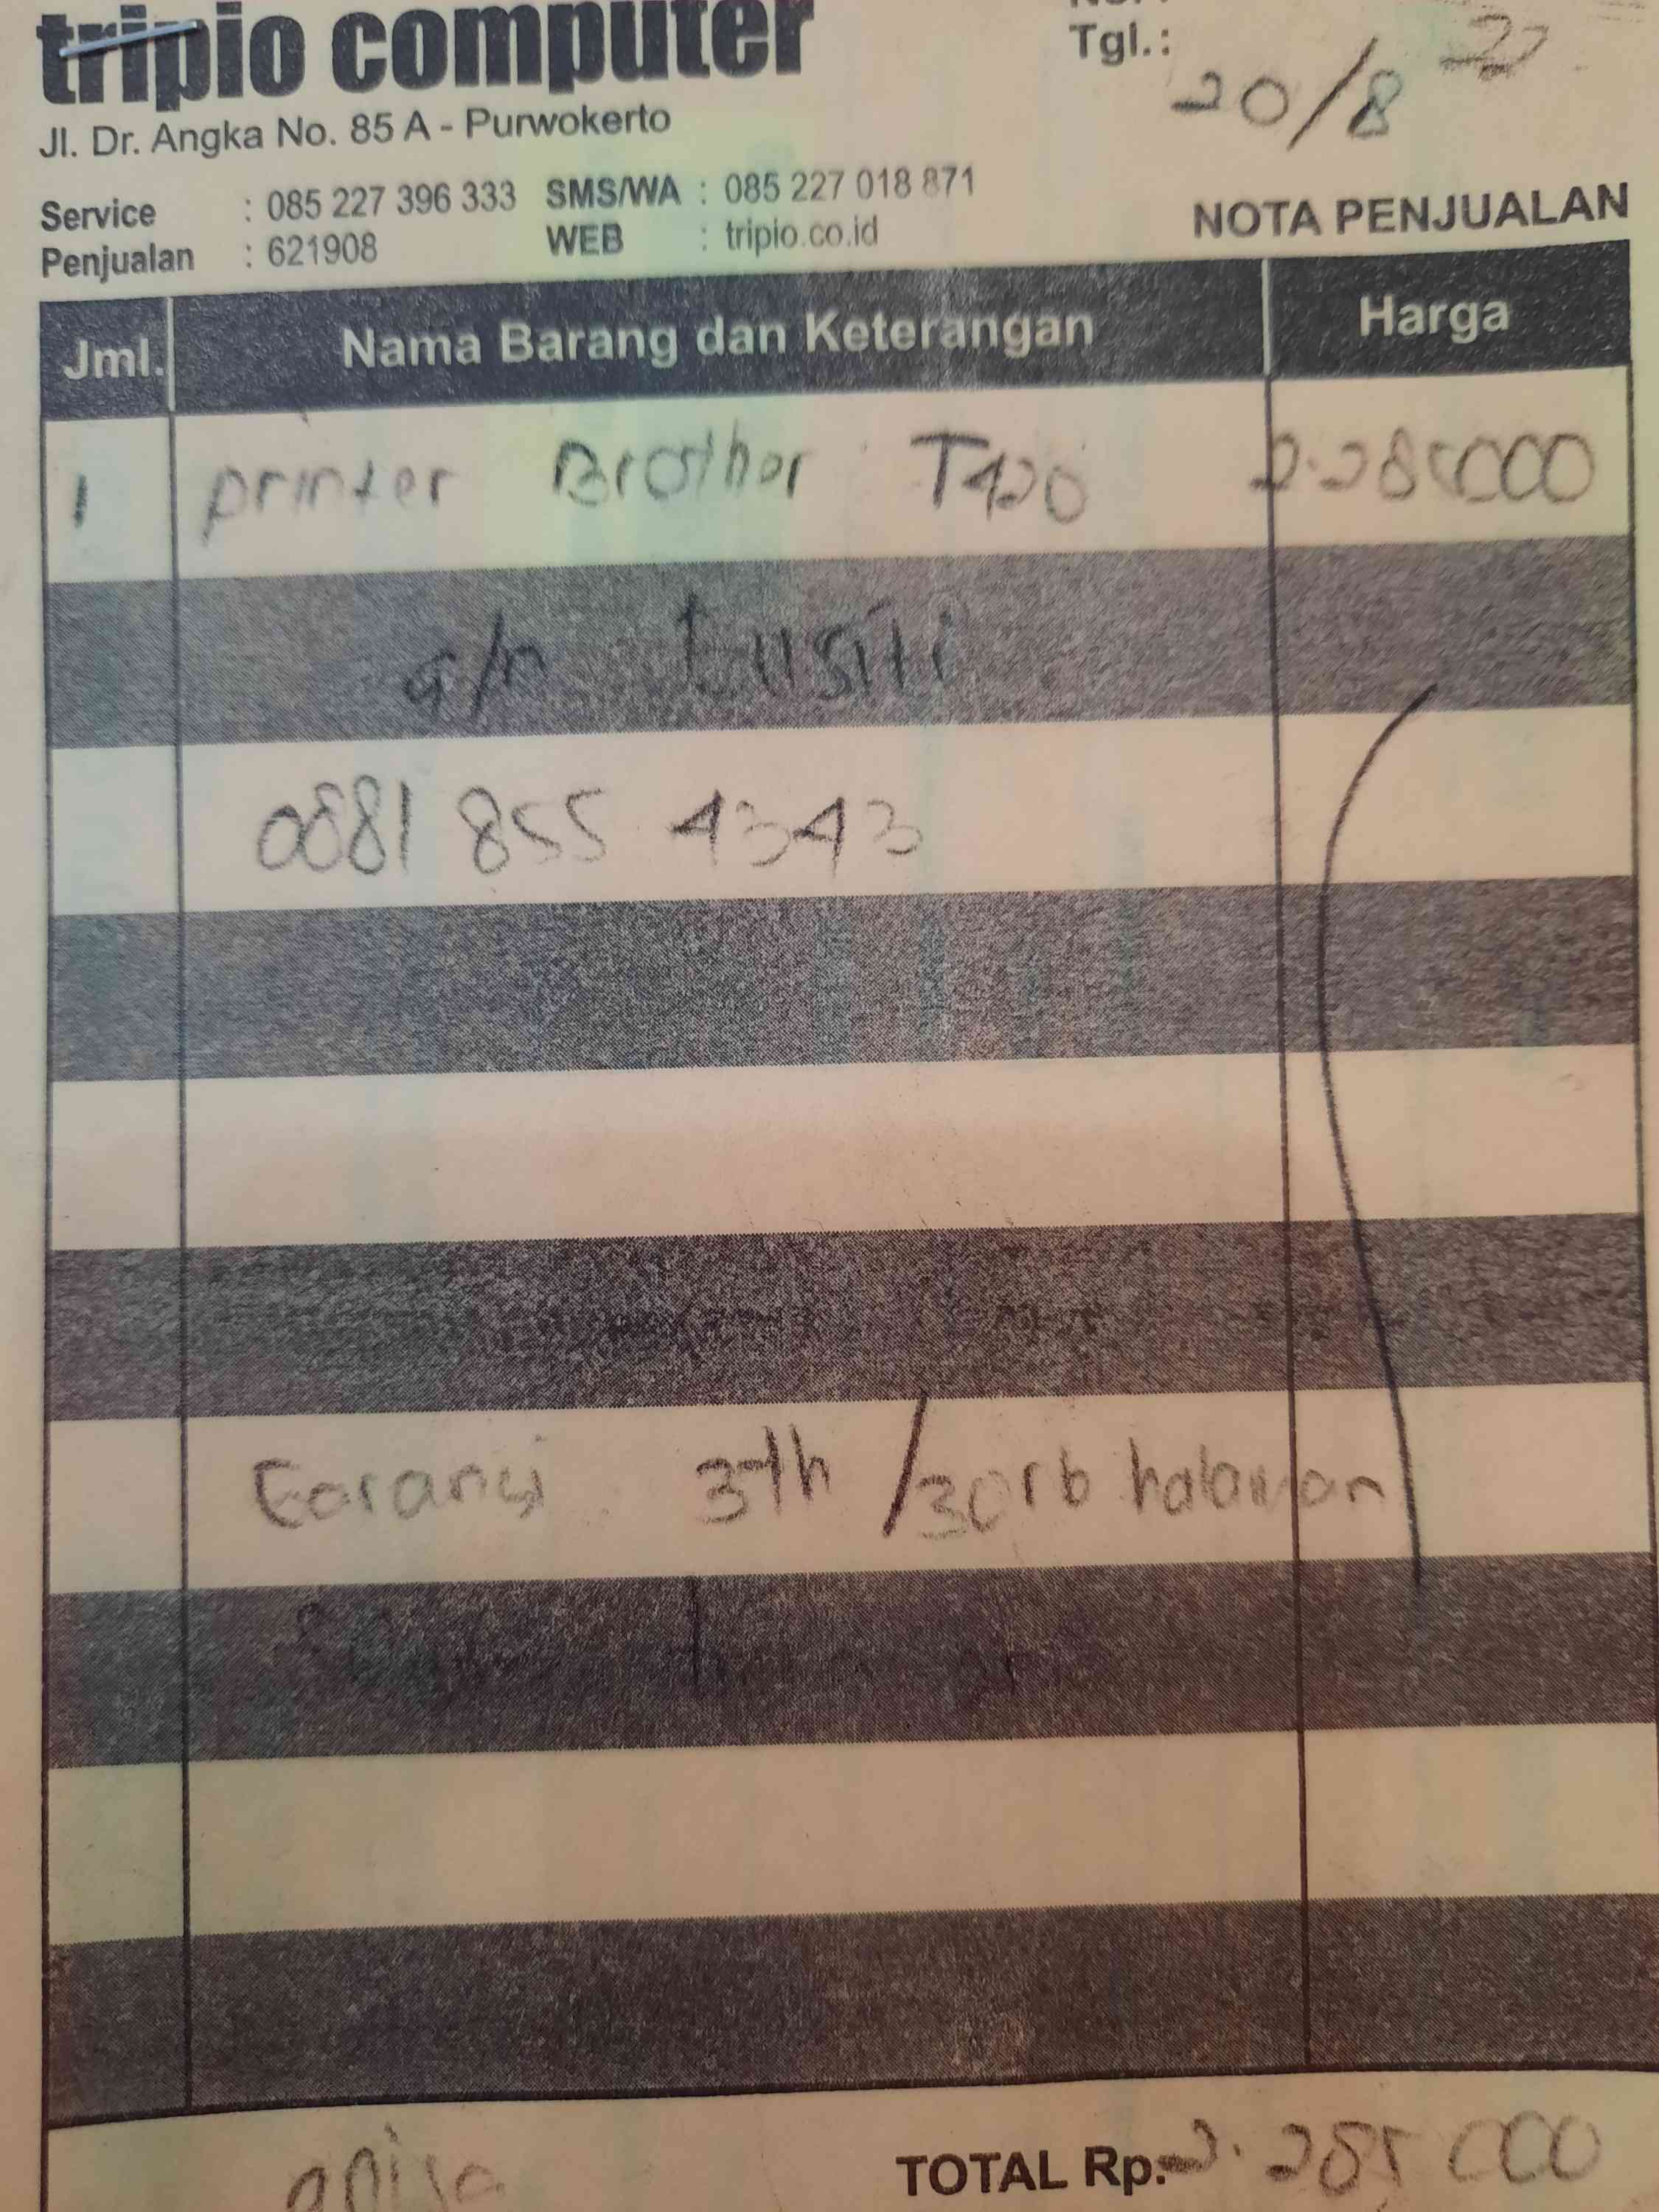 tripio computer
Tgl.:
20/8
Jl. Dr. Angka No. 85 A - Purwokerto
Service : 085 227 396 333 SMS/WA : 085 227 018 871
Penjualan : 621908 WEB : tripio.co.id
NOTA PENJUALAN
Jml. Nama Barang dan Keterangan Harga
1 printer Brother T420 2.285000
a/n
0881 855 4343
Garansi 3th /30rb halaman
anisa
TOTAL Rp. 2.285 000